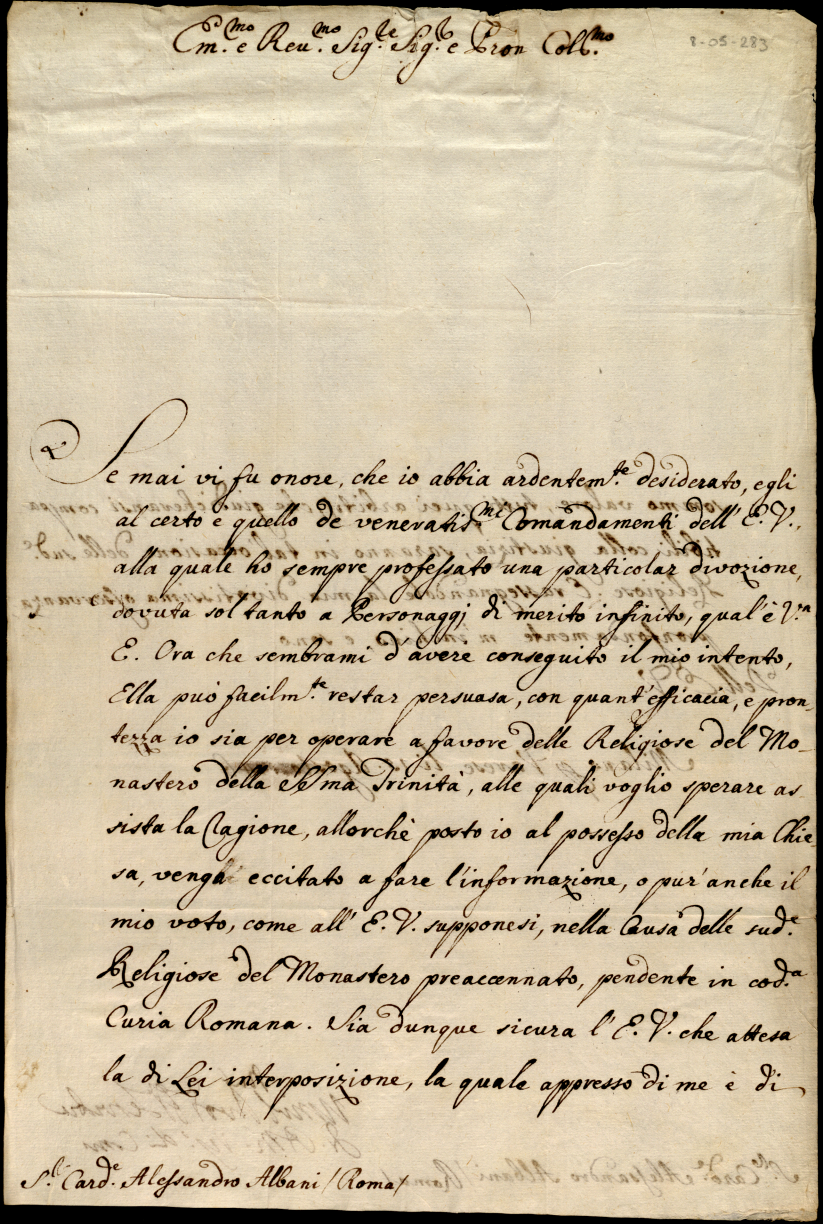 Em.mo e Reu.mo Sig.re Sig.r e Pron Coll.mo
8-05-283
Se mai vi fu onore, che io abbia ardentem.te desiderato, egli
al certo è quello de veneratis.mi Comandamenti dell' E. V.,
alla quale ho sempre professato una particolar divozione,
dovuta sol tanto a Personaggj di merito infinito, qual'è V.ra
E. Ora che sembrami d'avere conseguito il mio intento,
Ella può facilm.te restar persuasa, con quant'efficacia, e pron-
tezza io sia per operare a favore delle Religiose del Mo-
nastero della SSma Trinità, alle quali voglio sperare as-
sista la Ragione, allorchè posto io al possesso della mia Chie-
sa, venga eccitato a fare l'informazione, o pur'anche il
mio voto, come all' E. V. supponesi, nella Causa delle sud.e
Religiose del Monastero preaccennato, pendente in cod.a
Curia Romana. Sia dunque sicura l'E. V. che attesa
la di Lei interposizione, la quale appresso di me è di
S.r Card.e Alessandro Albani /Roma/